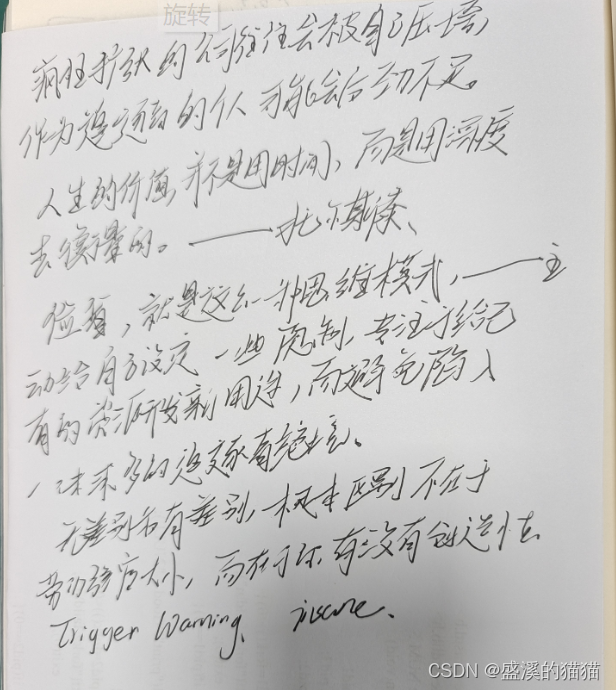 旋转
疯狂扩张的公司往往会被自己压垮,
作为追逐者的仆人可能会行动不足。
人生的价值,并不是用时间,而是用深度
去衡量的。——托尔斯泰、
就是这么一种思维模式,——主
动给自己设定一些限制,专注于给已
有的资源开发新用途,而避免陷入
一味求多的追逐
无差别和有差别,根本区别不在于
劳动强度大小,而在于你有没有创造性.
Trigger Warning、
CSDN @盛溪的猫猫